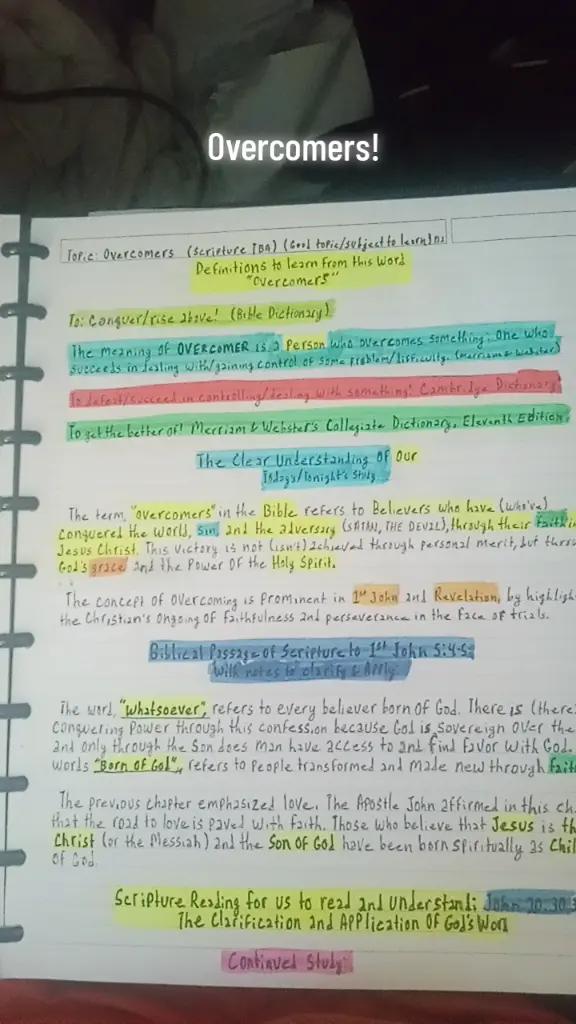 Overcomers!
Topic: Overcomers (Scripture TBA) (Good topic/subject to learn)
Definitions to learn from this Word
"Overcomers"
To: Conquer/rise above! (Bible Dictionary)
The meaning of OVERCOMER is a Person who overcomes something: One who
succeeds in dealing with/gaining control of some problem/difficulty. (Merriam & Webster)
To defeat/succeed in controlling/dealing with something! Cambridge Dictionary.
To get the better of! Merriam & Webster's Collegiate Dictionary, Eleventh Edition.
The Clear Understanding Of Our
Today's/Tonight's Study
The term, "overcomers" in the Bible refers to Believers who have (who've)
conquered the World, Sin, and the adversary (SATAN, THE DEVIL), through their faith in
Jesus Christ. This victory is not (isn't) achieved through personal merit, but thro
God's grace and the Power Of the Holy Spirit.
The concept of overcoming is prominent in 1st John and Revelation, by highligh
the Christian's Ongoing of faithfulness and perseverance in the face of trials.
Biblical Passage of Scripture to 1st John 5:4-5:
With notes to clarify & Apply:
The word, "Whatsoever", refers to every believer born of God. There is (there
Conquering Power through this confession because God is sovereign over the
and only through the Son does man have access to and find favor with God.
words "Born of God", refers to people transformed and made new through fait
The previous chapter emphasized love. The Apostle John affirmed in this ch
that the road to love is paved with faith. Those who believe that Jesus is th
Christ (or the Messiah) and the Son of God have been born spiritually as Chil
of God.
Scripture Reading for us to read and understand: John 20:30,3
The Clarification and Application Of God's Word
Continued Study: